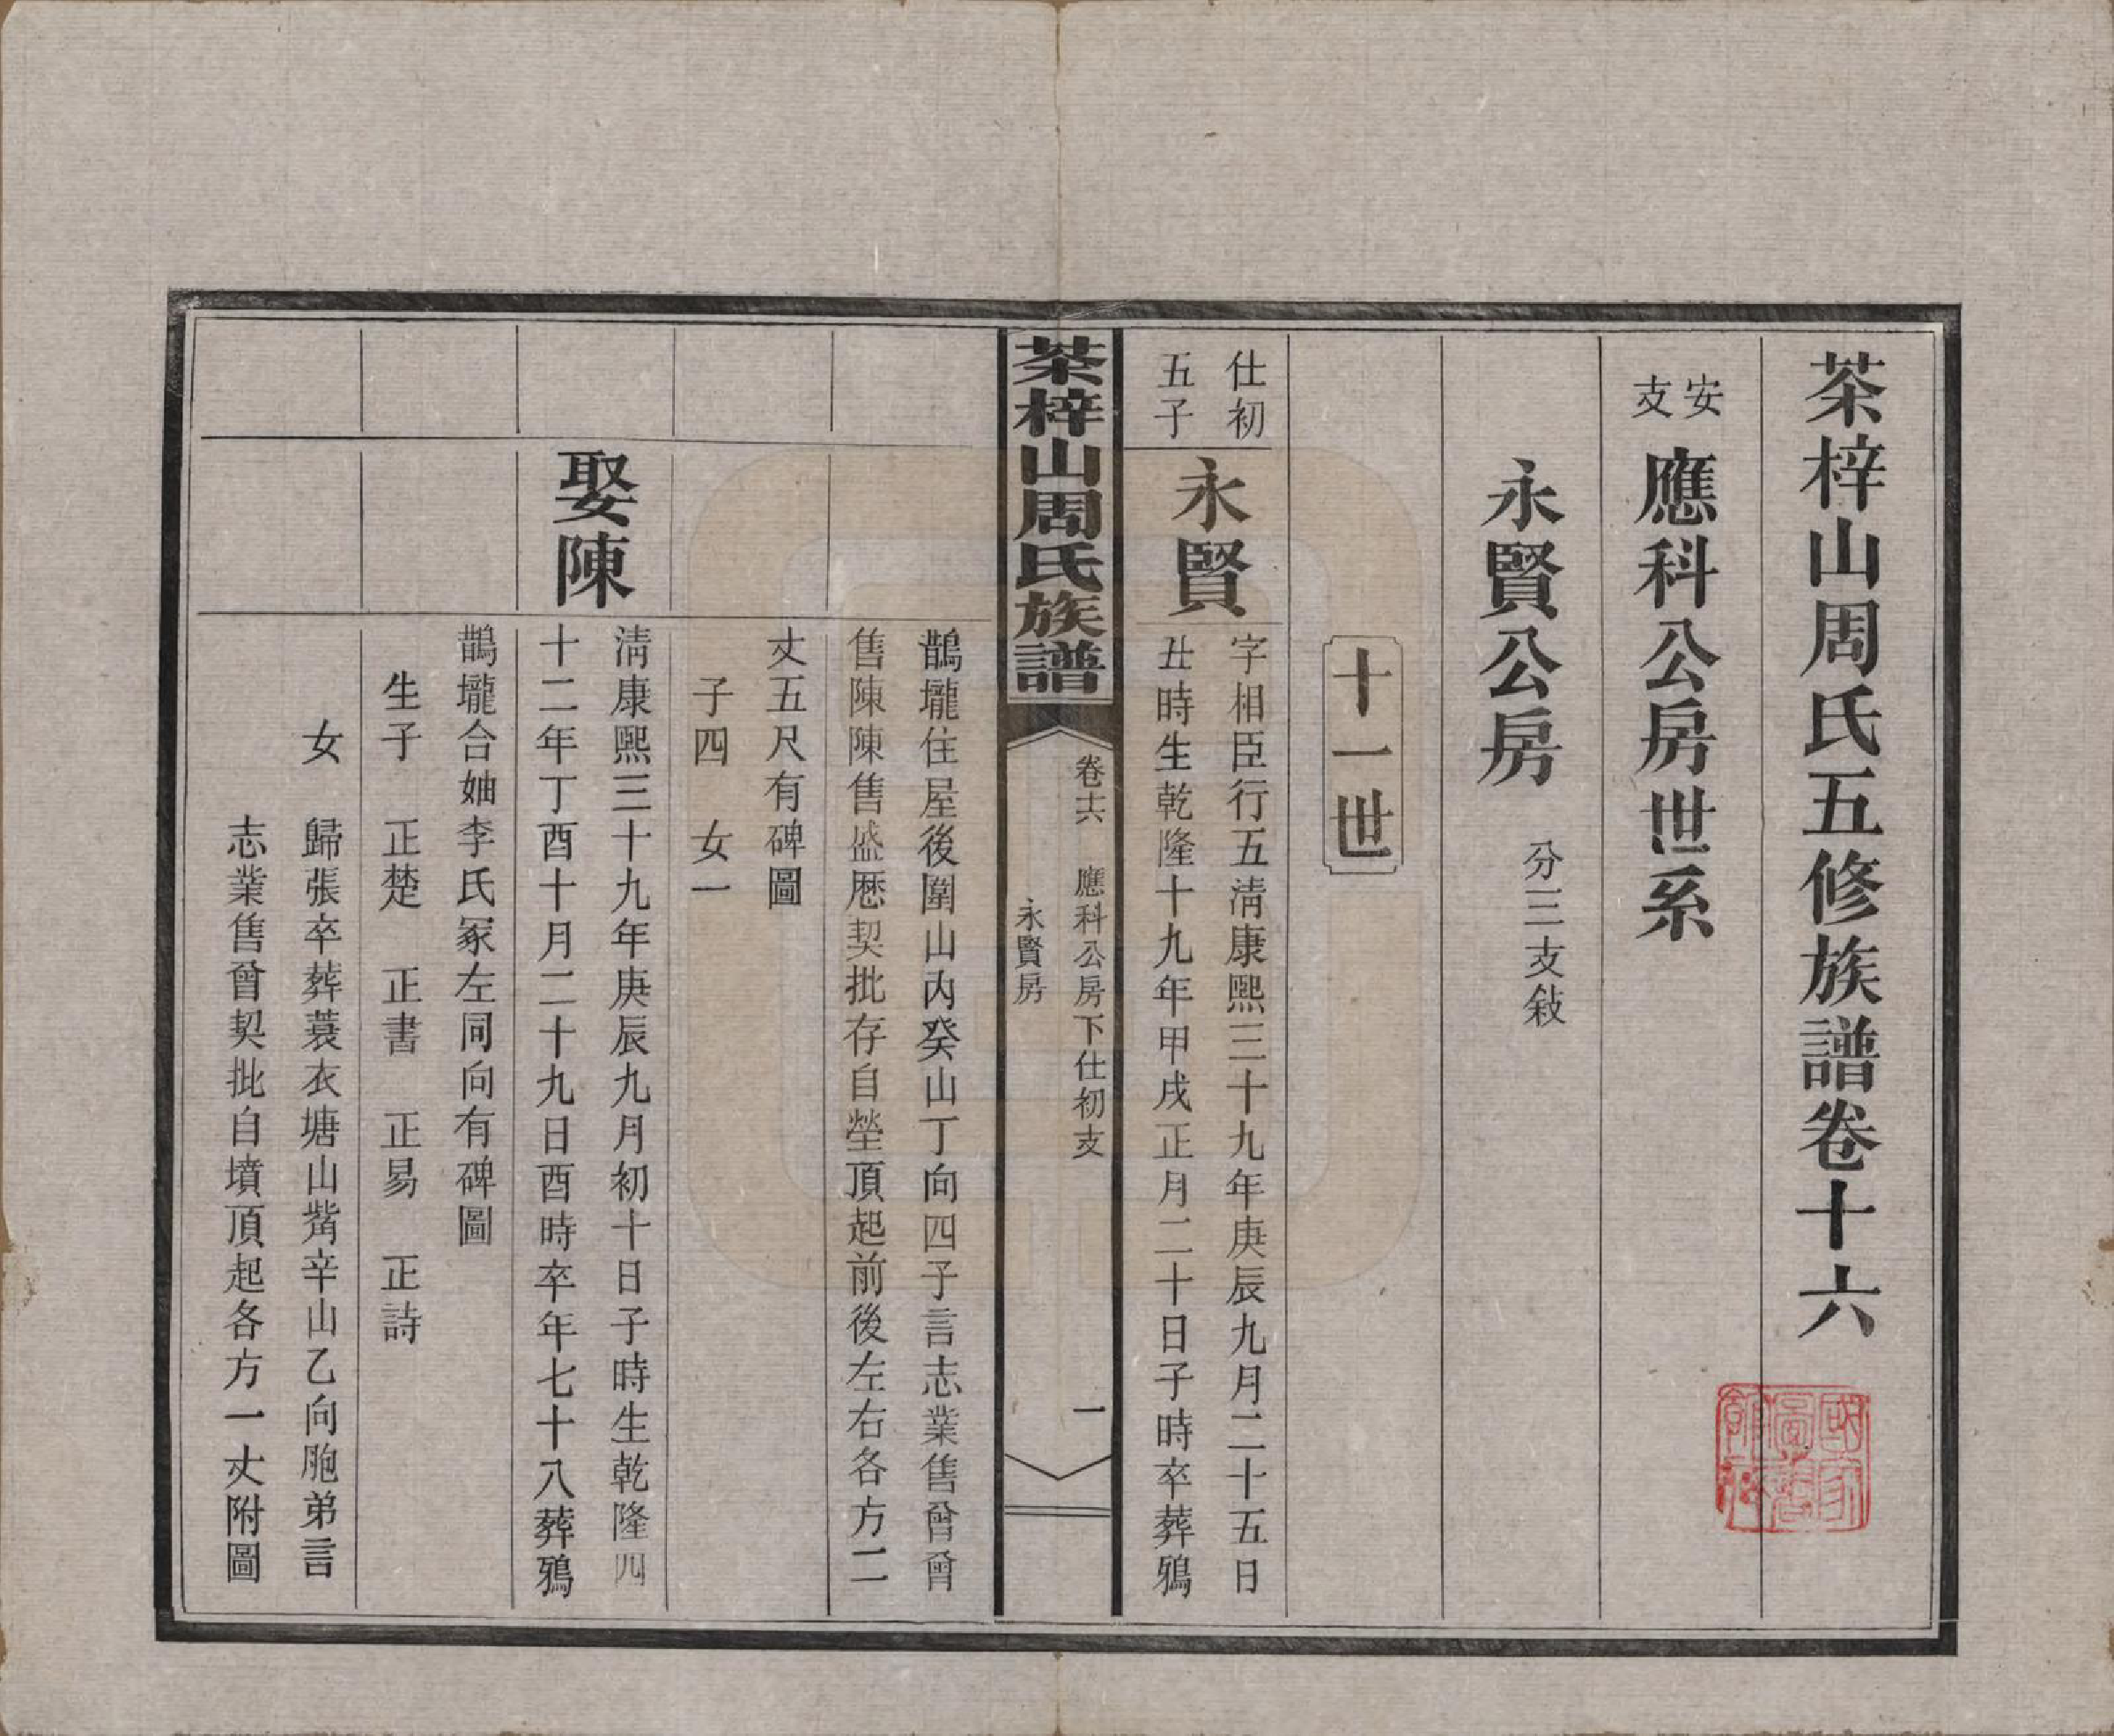 茶梓山周氏五修族譜卷十六
安支
應科公房世系
永賢公房
分三支敍
十一世
仕初
五子
永賢
字相臣行五淸康熙三十九年庚辰九月二十五日
丑時生乾隆十九年甲戌正月二十日子時卒葬鴉
茶梓山周氏族譜
卷十六 應科公房下仕初支
永賢房
一
鵲壠住屋後圍山內癸山丁向四子言志業售曾曾
售陳陳售盛厯契批存自塋頂起前後左右各方二
丈五尺有碑圖
子四 女一
娶陳
淸康熙三十九年庚辰九月初十日子時生乾隆四
十二年丁酉十月二十九日酉時卒年七十八葬鴉
鵲壠合妯李氏冢左同向有碑圖
生子 正楚 正書 正易 正詩
女 歸張卒葬蓑衣塘山觜辛山乙向胞弟言
志業售曾契批自墳頂起各方一丈附圖
國家圖書館藏